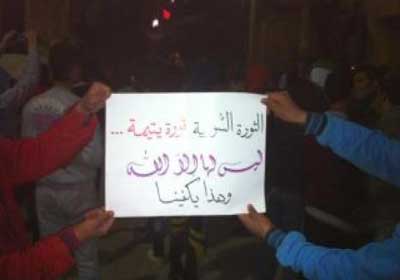 الثورة السورية ثورة يتيمة ...
ليس لها إلا الله
وهذا يكفينا